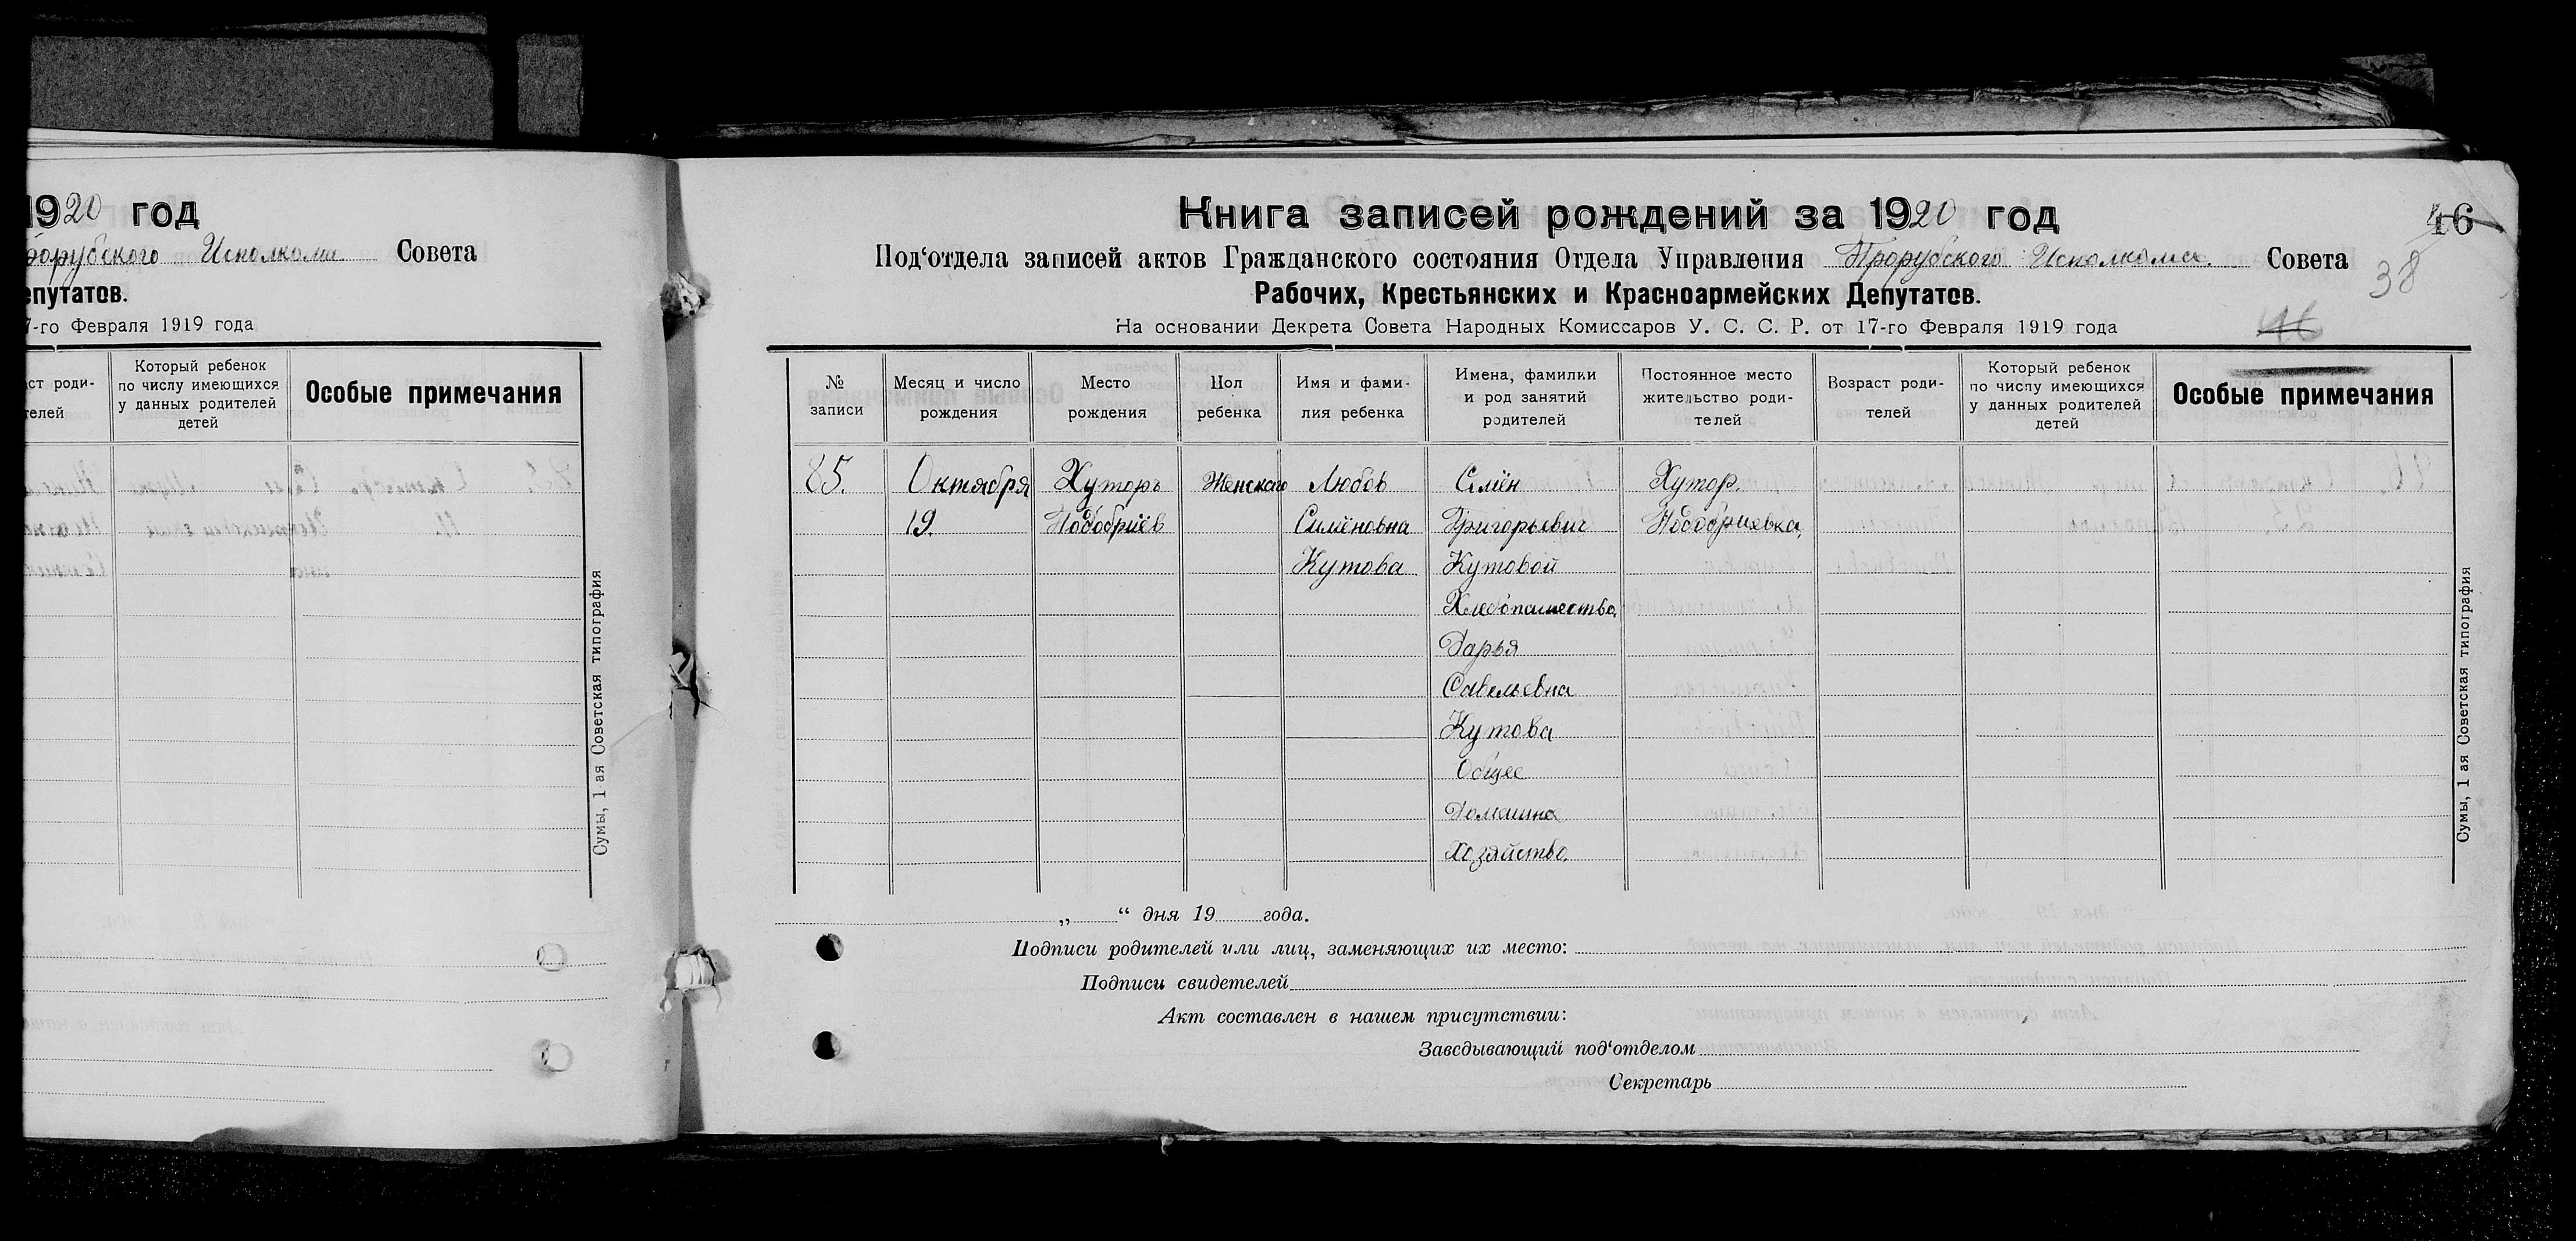 1920 год
Исполкома Совета
Депутатов.
7-го Февраля 1919 года
Который ребенок
по числу имеющихся
у данных родителей
детей
Особые примечания
Сумы, 1 ая Советская типография
Книга записей рождений за 1920 год
46
Под'отдела записей актов Гражданского состояния Отдела Управления Прорубского Исполкома Совета
38
Рабочих, Крестьянских и Красноармейских Депутатов.
На основании Декрета Совета Народных Комиссаров У. С. С. Р. от 17-го Февраля 1919 года
46
№
записи
Месяц и число
рождения
Место
рождения
Пол
ребенка
Имя и фами-
лия ребенка
Имена, фамилии
и род занятий
родителей
Постоянное место
жительство роди-
телей
Возраст роди-
телей
Который ребенок
по числу имеющихся
у данных родителей
детей
Особые примечания
85. Октября Хуторъ Женскаго Любов Семён Хутор.
19. Симёновна Григорьевич
Кутова Кутовой
Хлебопашество,
Дарья
Савельевна
Кутова
Общее
Домашна
Хозяйство,
„ “ дня 19 года.
Подписи родителей или лиц, заменяющих их место:
Подписи свидетелей
Акт составлен в нашем присутствии:
Заведывающий под'отделом
Секретарь
Сумы, 1 ая Советская типография